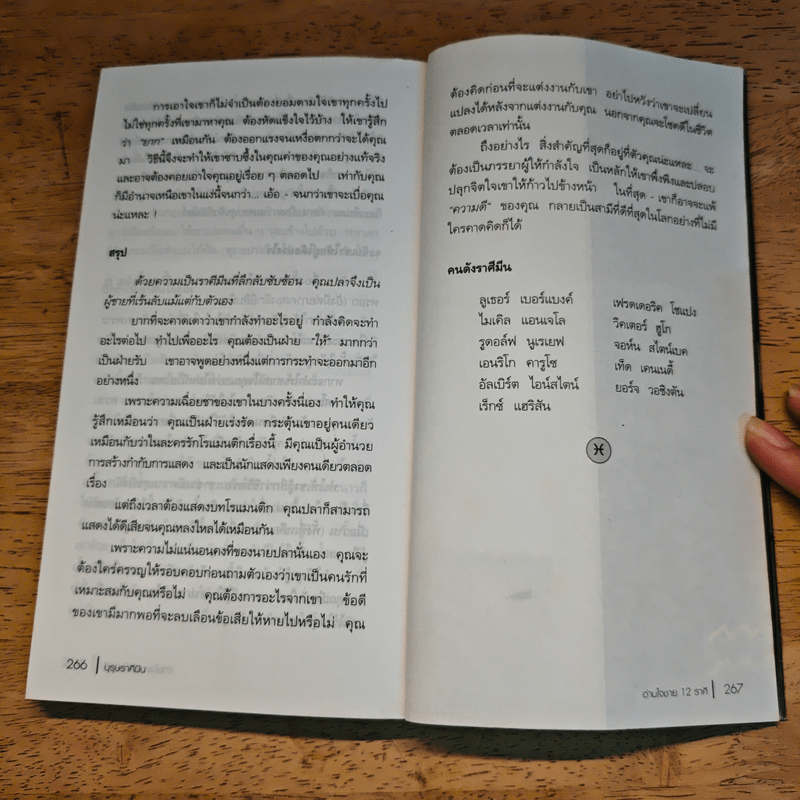 การเอาใจเขาก็ไม่จำเป็นต้องยอมตามใจเขาทุกครั้งไป
ไม่ใช่ทุกครั้งที่เขามาหาคุณ ต้องหัดแข็งใจไว้บ้าง ให้เขารู้สึก
ว่า "ยาก" เหมือนกัน ต้องออกแรงจนเหงื่อตกกว่าจะได้คุณ
มา วิธีนี้จึงจะทำให้เขาซาบซึ้งในคุณค่าของคุณอย่างแท้จริง
และอาจต้องคอยเอาใจคุณอยู่เรื่อย ๆ ตลอดไป เท่ากับคุณ
ก็มีอำนาจเหนือเขาในแง่นี้จนกว่า... เอ้อ - จนกว่าเขาจะเบื่อคุณ
น่ะแหละ !
สรุป
ด้วยความเป็นราศีมีนที่ลึกลับซับซ้อน คุณปลาจึงเป็น
ผู้ชายที่เร้นลับแม้แต่กับตัวเอง
ยากที่จะคาดเดาว่าเขากำลังทำอะไรอยู่ กำลังคิดจะทำ
อะไรต่อไป ทำไปเพื่ออะไร คุณต้องเป็นฝ่าย "ให้" มากกว่า
เป็นฝ่ายรับ เขาอาจพูดอย่างหนึ่งแต่การกระทำจะออกมาอีก
อย่างหนึ่ง
เพราะความเฉื่อยชาของเขาในบางครั้งนี่เอง ทำให้คุณ
รู้สึกเหมือนว่า คุณเป็นฝ่ายเร่งรัด กระตุ้นเขาอยู่คนเดียว
เหมือนกับว่าในละครรักโรแมนติกเรื่องนี้ มีคุณเป็นผู้อำนวย
การสร้างกำกับการแสดง และเป็นนักแสดงเพียงคนเดียวตลอด
เรื่อง
แต่ถึงเวลาต้องแสดงบทโรแมนติก คุณปลาก็สามารถ
แสดงได้ดีเสียจนคุณหลงใหลได้เหมือนกัน
เพราะความไม่แน่นอนคงที่ของนายปลานั่นเอง คุณจะ
ต้องใคร่ครวญให้รอบคอบก่อนถามตัวเองว่าเขาเป็นคนรักที่
เหมาะสมกับคุณหรือไม่ คุณต้องการอะไรจากเขา ข้อดี
ของเขามีมากพอที่จะลบเลือนข้อเสียให้หายไปหรือไม่ คุณ
266 บุรุษราศีมีน
ต้องคิดก่อนที่จะแต่งงานกับเขา อย่าไปหวังว่าเขาจะเปลี่ยน
แปลงได้หลังจากแต่งงานกับคุณ นอกจากคุณจะโชคดีในชีวิต
ตลอดเวลาเท่านั้น
ถึงอย่างไร สิ่งสำคัญที่สุดก็อยู่ที่ตัวคุณน่ะแหละ... จะ
ต้องเป็นภรรยาผู้ให้กำลังใจ เป็นหลักให้เขาพึ่งพิงและปลอบ
ปลุกจิตใจเขาให้ก้าวไปข้างหน้า ในที่สุด - เขาก็อาจจะแพ้
"ความดี" ของคุณ กลายเป็นสามีที่ดีที่สุดในโลกอย่างที่ไม่มี
ใครคาดคิดก็ได้
คนดังราศีมีน
ลูเธอร์ เบอร์แบงค์
ไมเคิล แอนเจโล
รูดอล์ฟ นูเรเยฟ
เอนริโก คารูโซ
อัลเบิร์ต ไอน์สไตน์
เร็กซ์ แฮริสัน
เฟรดเดอริค โชแปง
วิคเตอร์ ฮูโก
จอห์น สไตน์เบค
เท็ด เคนเนดี้
ยอร์จ วอชิงตัน
อ่านใจชาย 12 ราศี 267